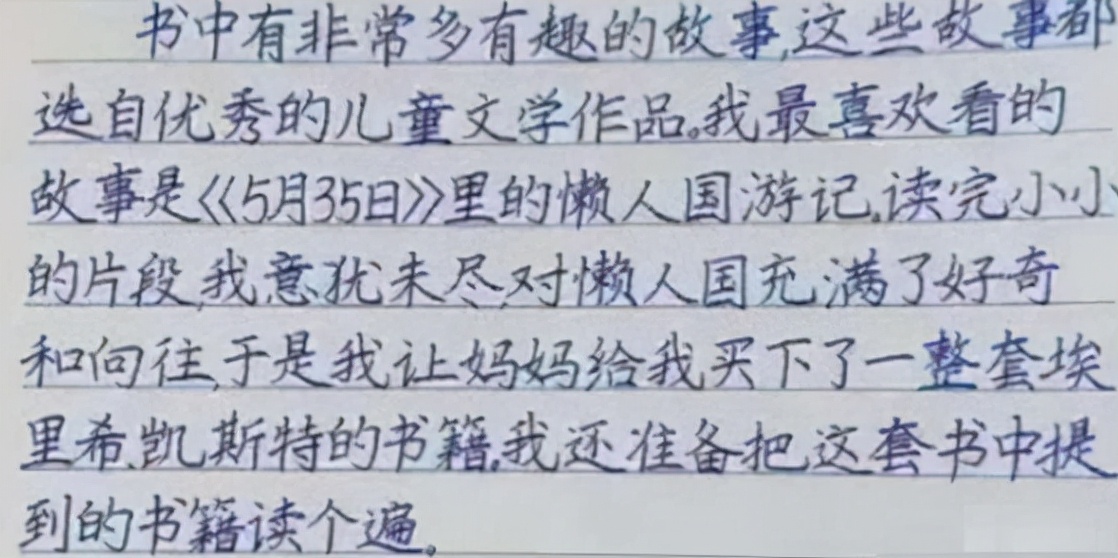 书中有非常多有趣的故事,这些故事都
选自优秀的儿童文学作品。我最喜欢看的
故事是《5月35日》里的懒人国游记,读完小小
的片段,我意犹未尽,对懒人国充满了好奇
和向往,于是我让妈妈给我买下了一整套埃
里希.凯斯特的书籍,我还准备把这套书中提
到的书籍读个遍。